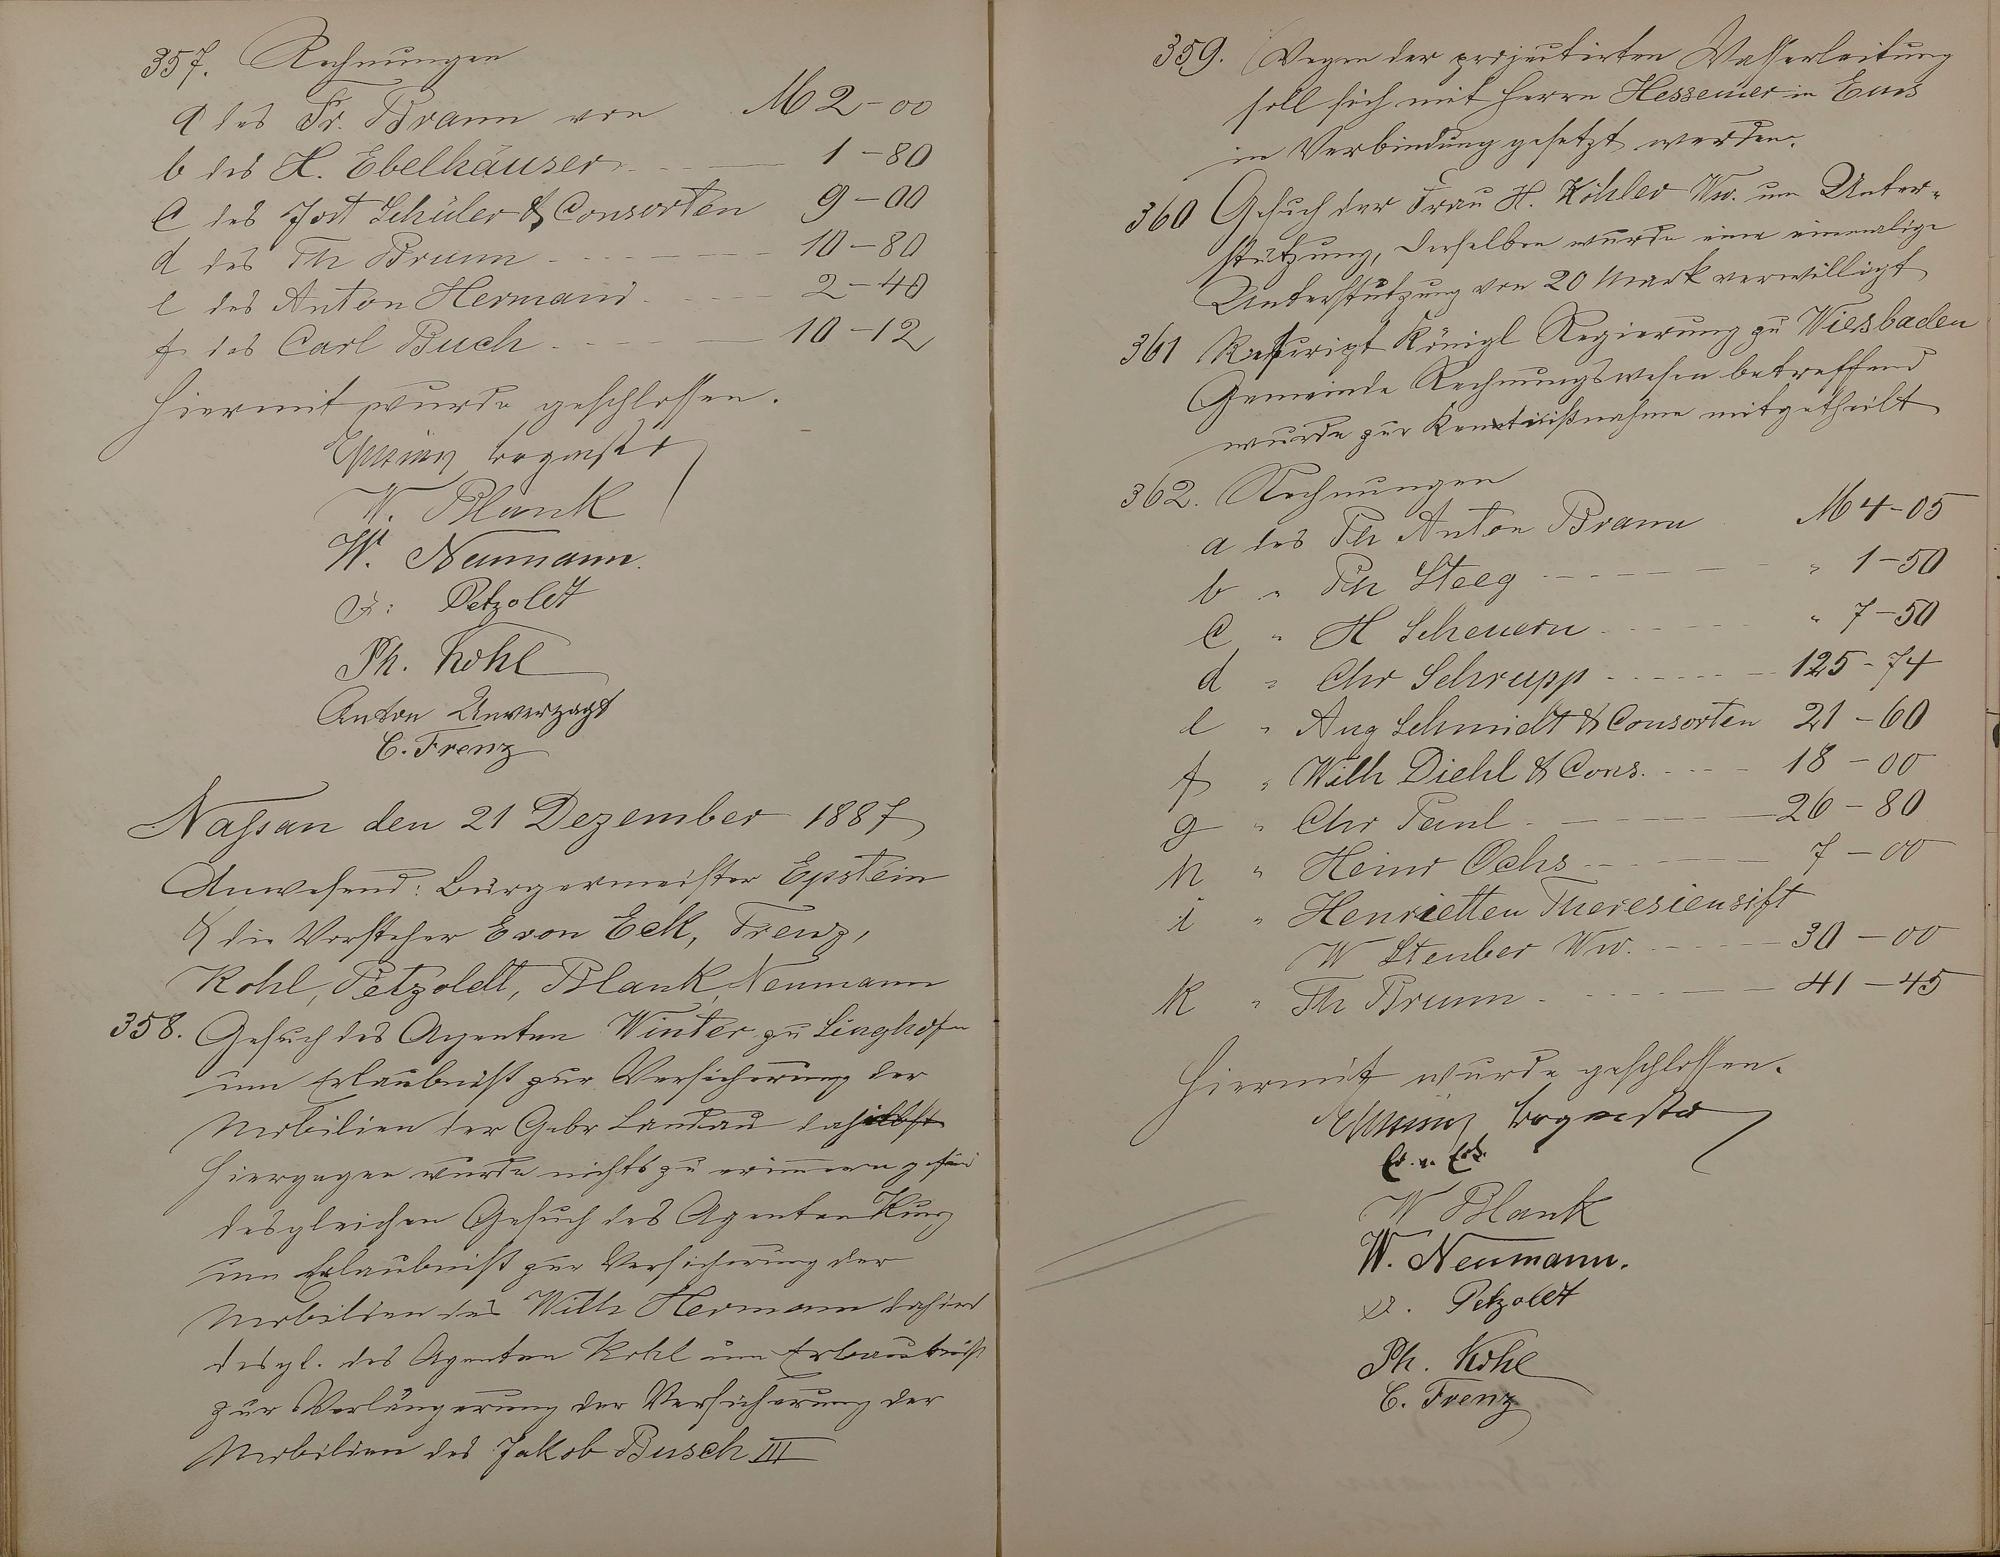 357. Rechnungen
a des Fr. Bramm von M 2-00
b des H. Ebelhäuser 1-80
c des Jost Schüler & Consorten 9-00
d des Th Brumm 10-80
e des Anton Hermann 2-40
f des Carl Buch 10-12
Hiermit wurde geschlossen.
Epstein Brgmstr
W. Blank
W. Neumann.
Petzoldt
Ph. Kohl
Anton Unverzagt
C. Frenz
Nassau den 21 Dezember 1887
Anwesend: Bürgermeister Epstein
& die Vorsteher E von Eck, Frenz,
Kohl, Petzoldt, Blank, Neumann
358. Gesuch des Agenten Winter zu Singhofen
um Erlaubniß zur Versicherung der
Mobilien der Gebr Landau dahier
Hiergegen wurde nichts zu erinnern gefund
desgleichen Gesuch des Agenten Kurz
um Erlaubniß zur Versicherung der
Mobilien des Wilh Hermann dahier
desgl. des Agenten Kohl um Erlaubniß
zur Verlängerung der Versicherung der
Mobilien des Jakob Busch III
359. Wegen der projectirten Wasserleitung
soll sich mit Herrn Hessemer in Ems
in Verbindung gesetzt werden.
360 Gesuch der Frau H. Köhler Ww. um Unter-
stützung, derselben wurde eine einmalige
Unterstützung von 20 Mark verwilligt
361 Rescript Königl Regierung zu Wiesbaden
Gemeinde Rechnungswesen betreffend
wurde zur Kenntnißnahme mitgetheilt
362. Rechnungen
a des Ph Anton Bramm M 4-05
b " Ph Steeg " 1-50
c " H Scheuern " 7-50
d " Chr Schrupp 125-74
e " Aug Schmidt & Consorten 21-60
f " Wilh Diehl & Cons. 18-00
g " Chr Paul 26-80
h " Heinr Ochs 7-00
i " Henrietten Theresienstift
W Steuber Ww. 30-00
k " Th Brumm 41-45
Hiermit wurde geschlossen.
Epstein Brgmstr
Ed. v. Eck.
W Blank
W. Neumann.
Petzoldt
Ph. Kohl
C. Frenz